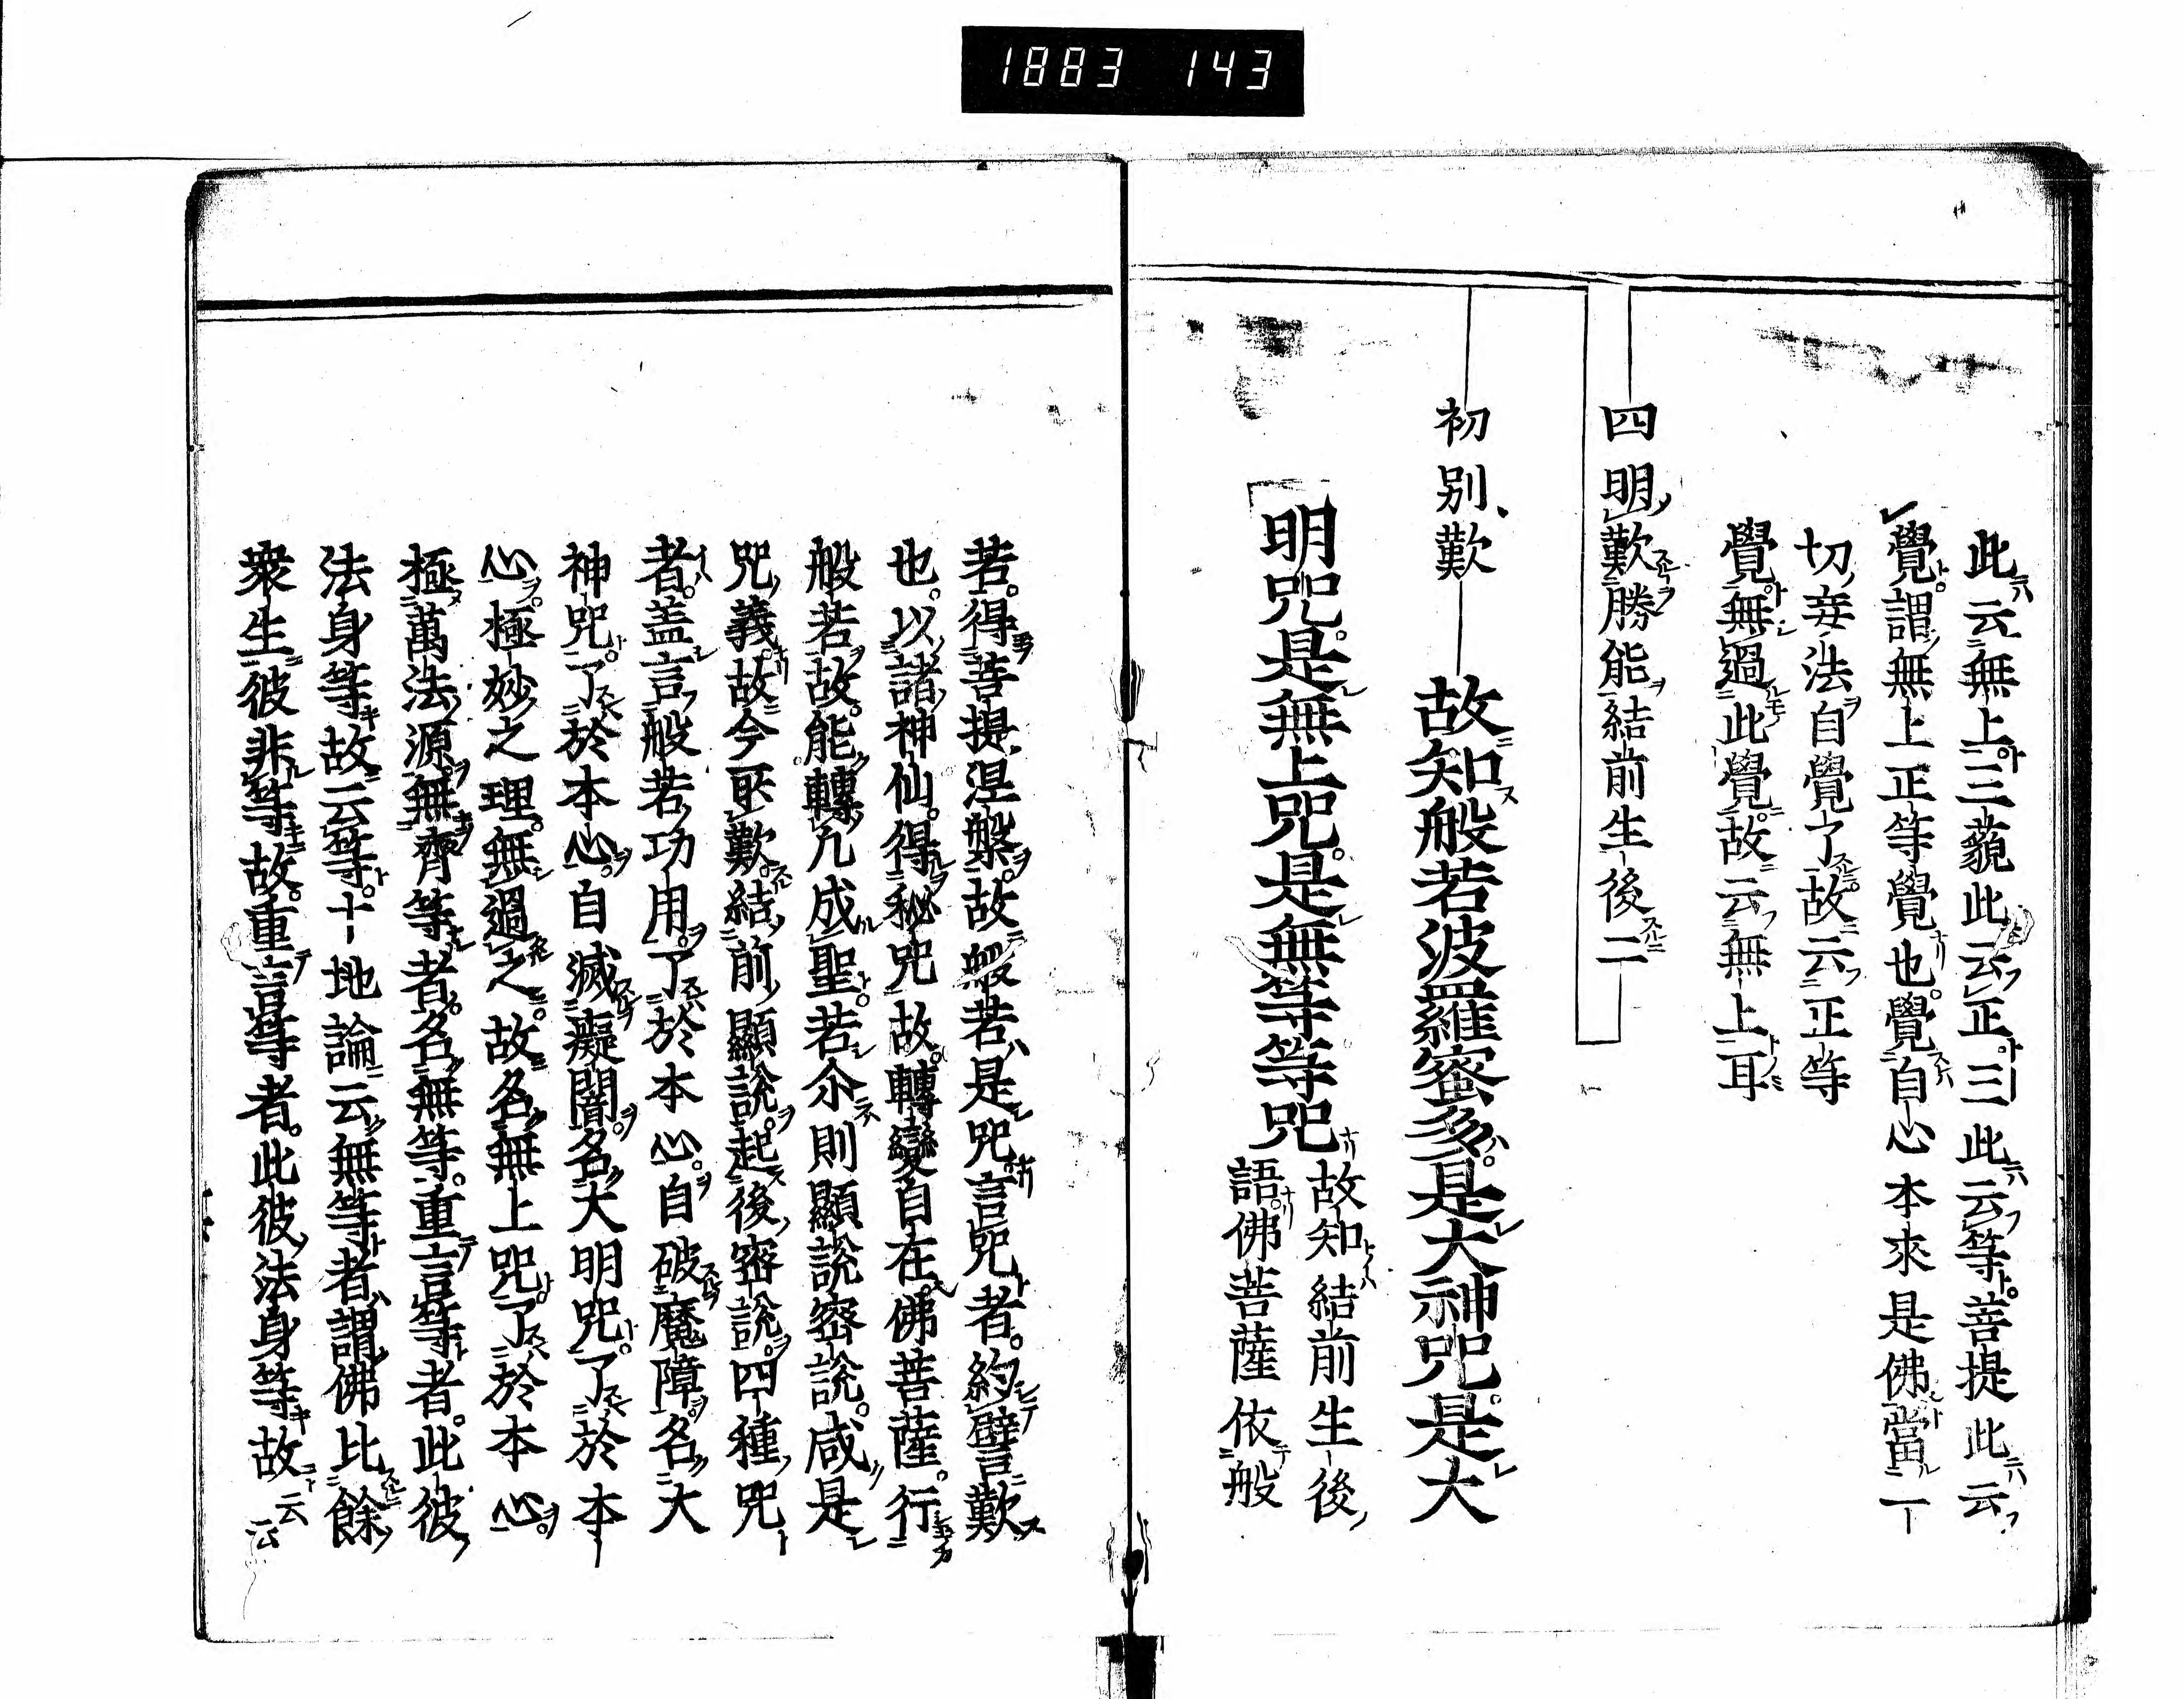 1883 143
此云無上三藐此云正三此云等菩提此云
覺謂無上正等覺也覺自心本來是佛當一
切妄法自覺了故云正等
覺無過此覺故云無上耳
四明歎勝能結前生後二
初別歎
故知般若波羅蜜多是大神咒是大
明咒是無上咒是無等等咒
故知結前生後
語佛菩薩依般
若得菩提涅槃故般若是咒言咒者約譬歎
也以諸神仙得秘咒故轉變自在佛菩薩行
般若故能轉凡成聖若尒則顯說密說咸是
咒義故今叹歎結前顯說起後密說四種咒
者盖言般若功用了於本心自破魔障名大
神咒了於本心自滅癡闇名大明咒了於本
心極妙之理無過之故名無上咒了於本心
極萬法源無齊等者名無等重言等者此彼
法身等故云等十地論云無等者謂佛比餘
衆生彼非等故重言等者此彼法身等故云云